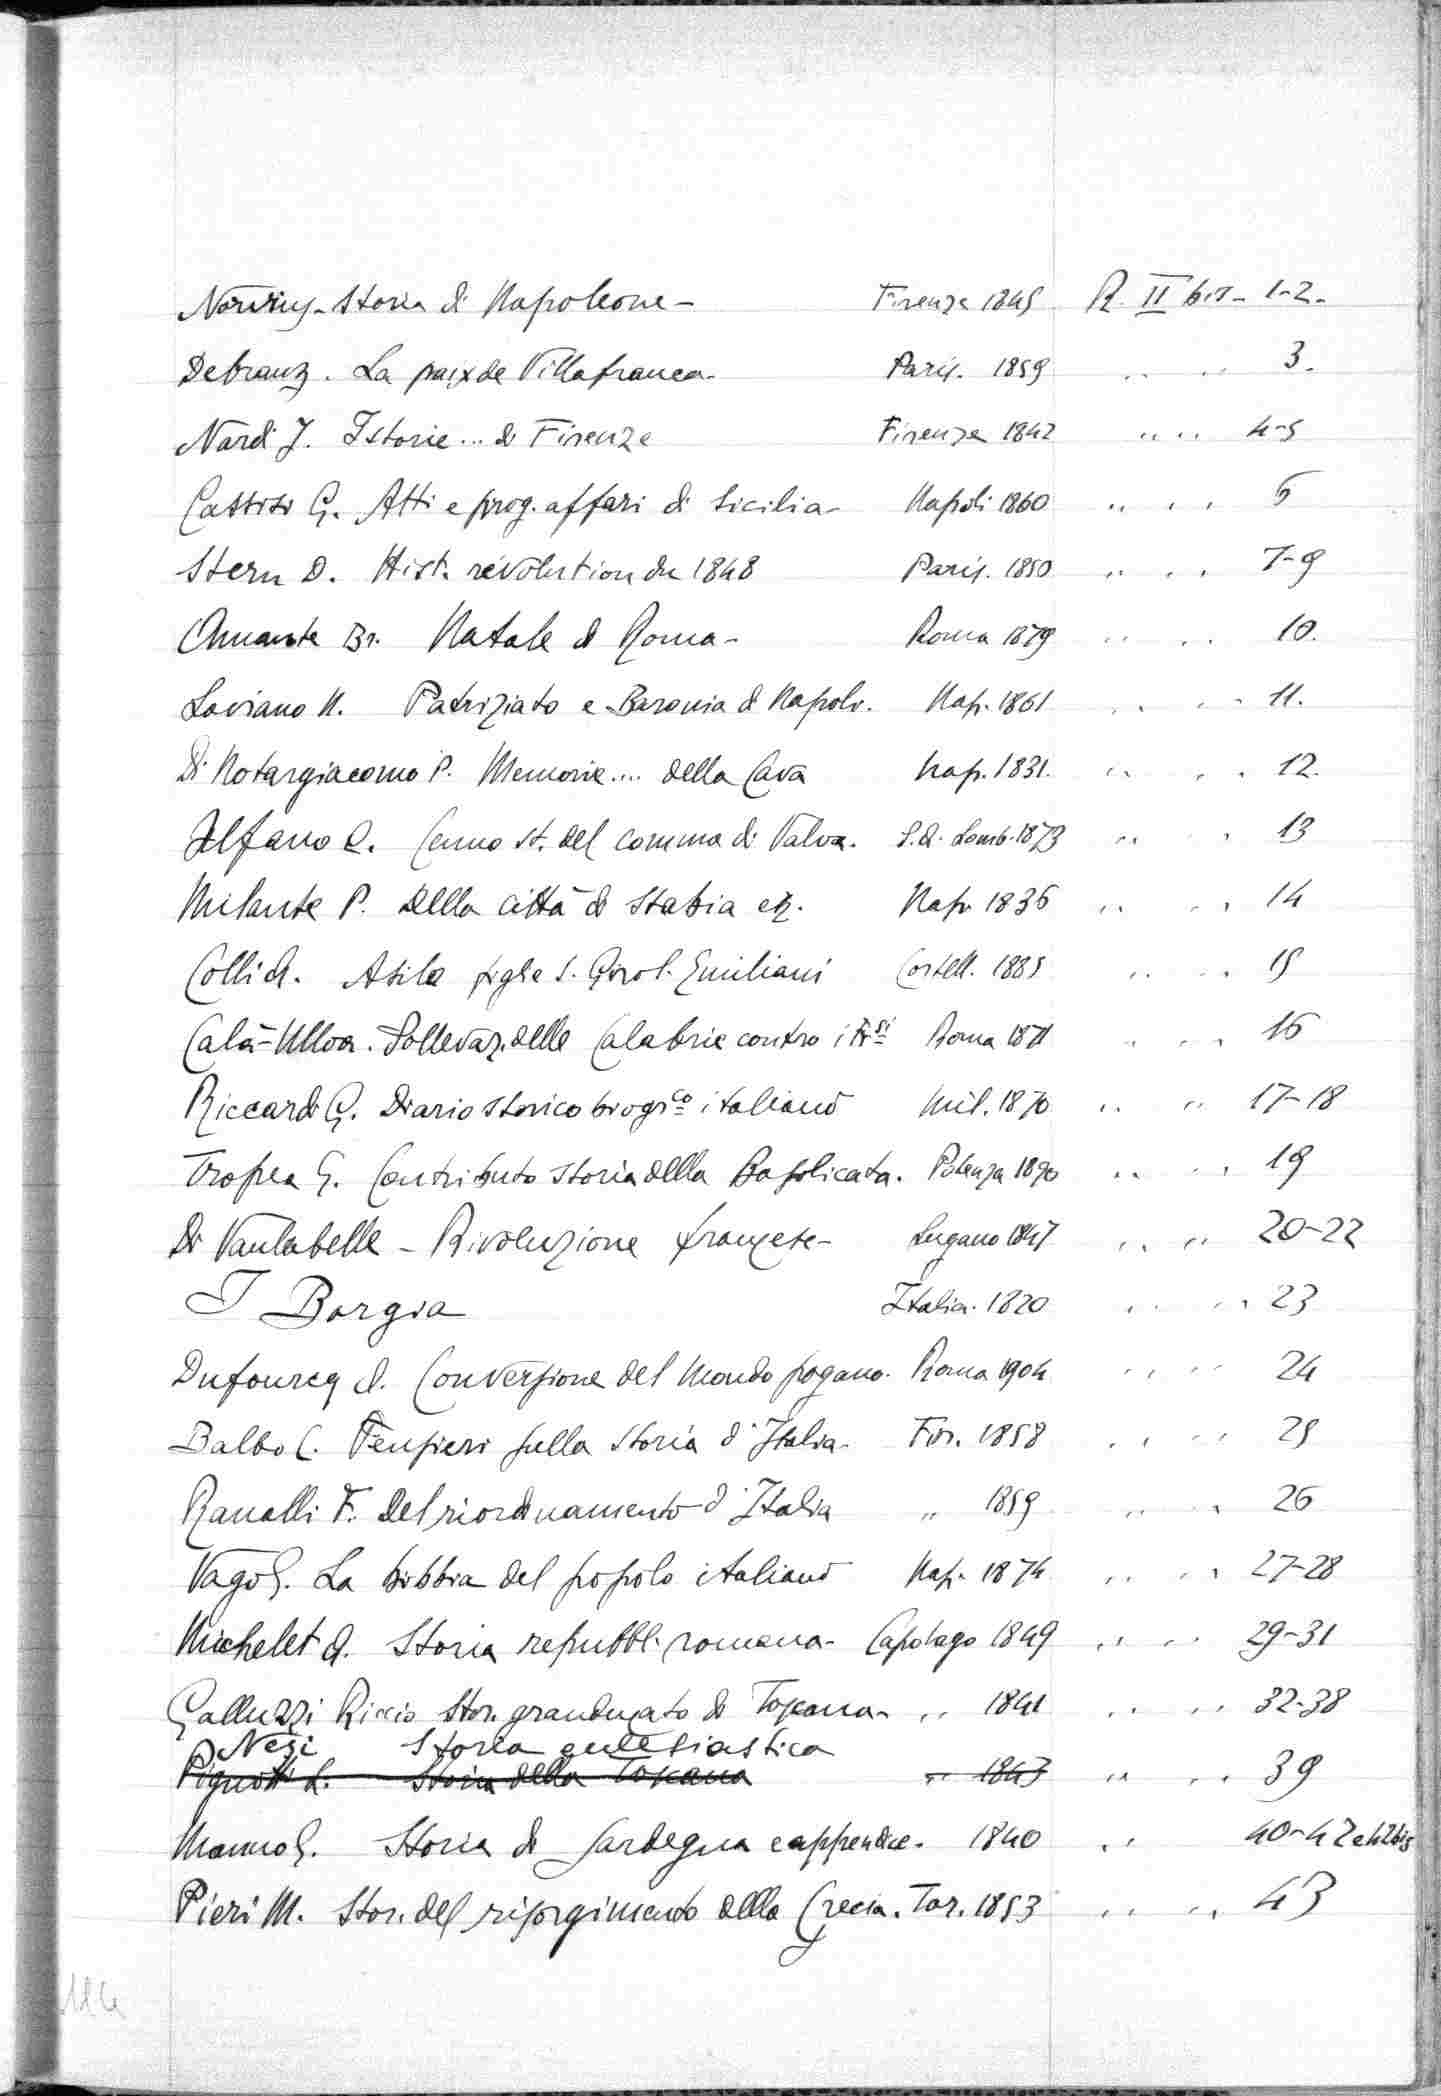 Norvins. Storia di Napoleone - Firenze 1845 R. II bis - 1-2.
Debrauz. La paix de Villafranca. Paris. 1859 " " 3.
Nardi J. Istorie ... di Firenze Firenze 1842 " " 4-5
Cassisi G. Atti e prog. affari di Sicilia - Napoli 1860 " " 6
Stern D. Hist. révolution de 1848 Paris. 1850 " " 7-9
Amante Br. Natale di Roma - Roma 1879 " " 10.
Laviano N. Patriziato e Baronia di Napoli. Nap. 1861 " " 11.
Di Notargiacomo P. Memorie .... della Cava Nap. 1831. " " 12.
Alfano C. Cenno st. del comma di Valva. S.A. Lomb. 1873 " " 13
Milante P. Della città di Stabia ez. Nap. 1836 " " 14
Colli A. Asila figlie S. Girol. Emiliani Castell. 1885 " " 15
Calà-Ulloa. Sollevaz. delle Calabrie contro i Fr.si Roma 1871 " " 16
Riccardi G. Diario storico biogr.co italiano Mil. 1870 " " 17-18
Tropea G. Contributo storia della Basilicata. Potenza 1890 " " 19
Di Vaulabelle - Rivoluzione francese - Lugano 1847 " " 20-22
I Borgia Italia. 1820 " " 23
Dufourcq A. Conversione del mondo pagano. Roma 1904 " " 24
Balbo C. Pensieri sulla storia d'Italia - Fir. 1858 " " 25
Ranalli F. Del riordinamento d'Italia " 1859 " " 26
Vago G. La bibbia del popolo italiano Nap. 1874 " " 27-28
Michelet A. Storia repubbl. romana - Capolago 1849 " " 29-31
Galluzzi Riccio Stor. granducato di Toscana - " 1841 " " 32-38
Negi Storia eclesiastica
Pignotti L. Storia della Toscana " 1843 " " 39
Manno G. Storia di Sardegna e appendice. 1840 " 40-42 e 42bis
Pieri M. Stor. del risorgimento della Grecia. Tor. 1853 " " 43